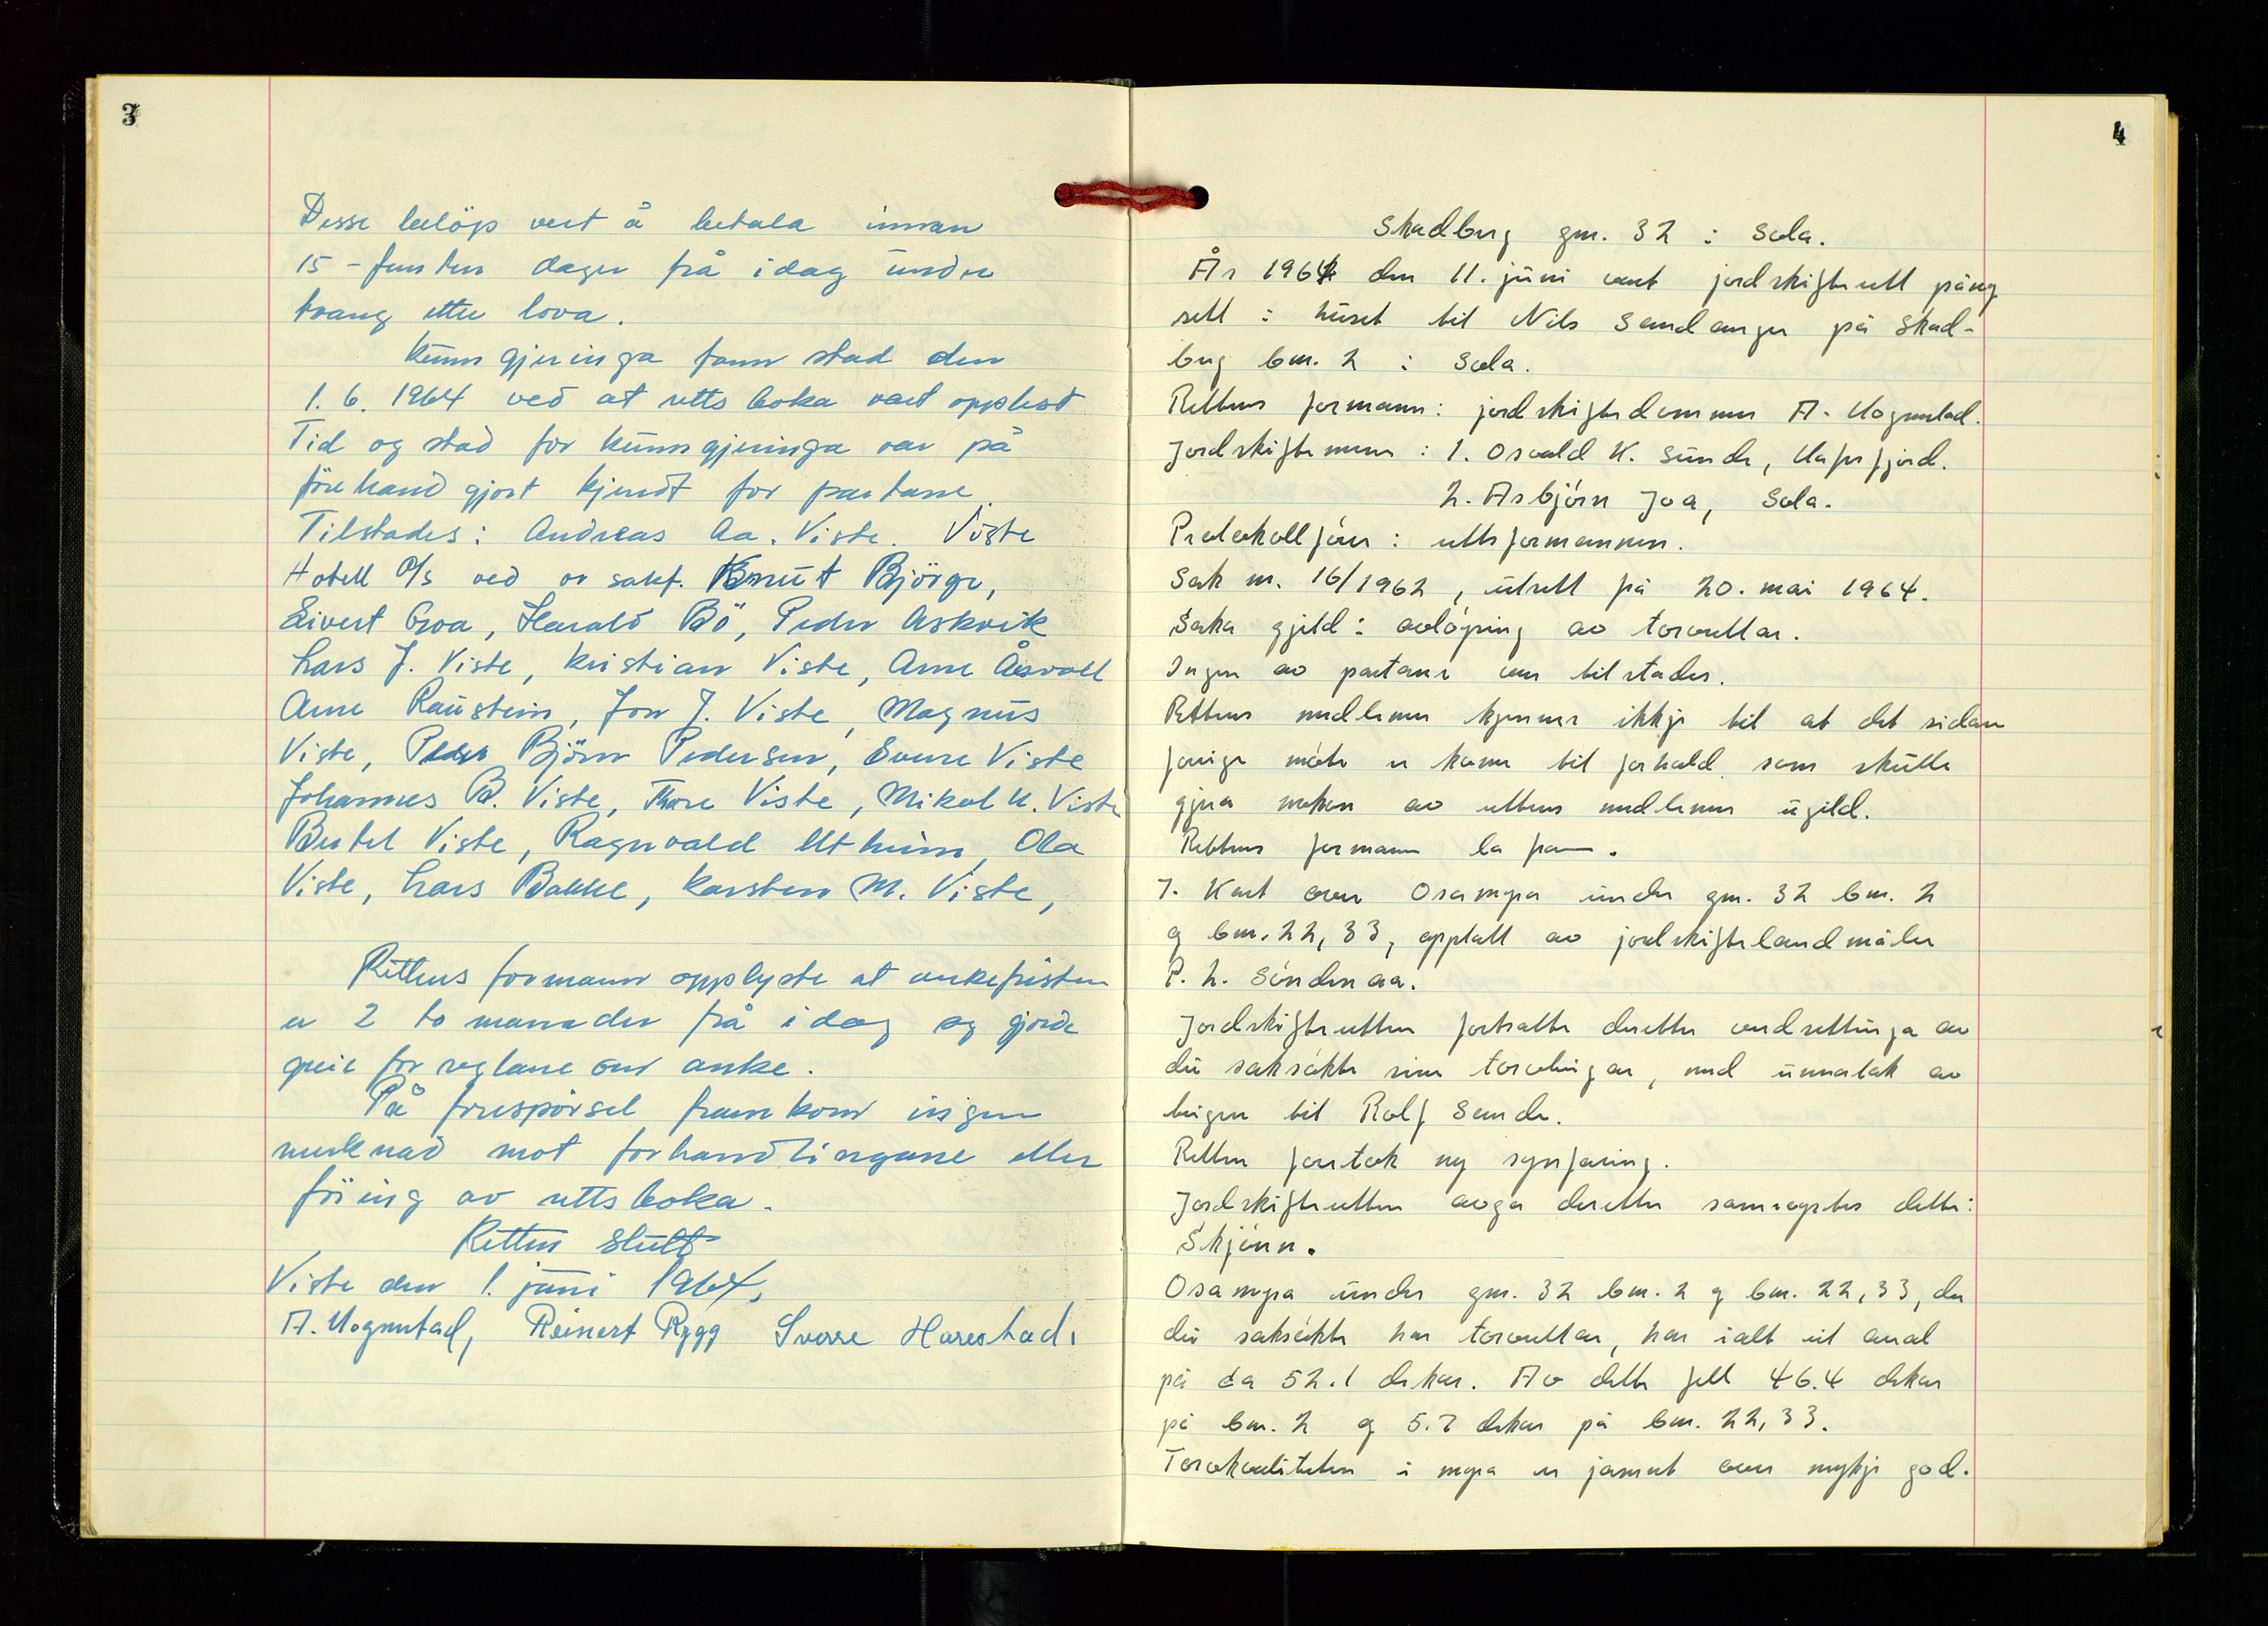 3
Desse beløp vert å betala innan
15 - femten dager frå idag under
tvang etter lova.
Kunngjeringa fann stad den
1. 6. 1964 ved at rettsboka vart opplest
Tid og stad for kunngjeringa var på
førehand gjort kjendt for partane.
Tilstades: Andreas Aa. Viste. Viste
Hotell A/S ved or sakf. Knut Bjørge,
Sivert Goa, Harald Bø, Peder Askvik
Lars J. Viste, Kristian Viste, Arne Åsvoll
Arne Raustein, Jon J. Viste, Magnus
Viste, Peder Bjørn Pedersen, Sverre Viste
Johannes B. Viste, Thore Viste, Mikal K. Viste
Bertel Viste, Ragnvald Utheim, Ola
Viste, Lars Bakke, Karsten M. Viste,
Rettens formann opplyste at ankefristen
er 2 to månader frå i dag og gjorde
greie for reglane om anke.
På førespørsel framkom ingen
merknad mot forhandlingane eller
føring av rettsboka.
Retten slutt
Viste den 1. juni 1964,
A. Mognstad, Reinert Rygg Sverre Harestad.
4
Skadberg gnr. 32 i Sola.
År 1964 den 11. juni vart jordskifterett påny
sett i huset til Nils Sandanger på Skad-
berg bnr. 2 i Sola.
Rettens formann: jordskiftedommer A. Mognstad.
Jordskiftemenn: 1. Osvald K. Sunde, Hafrsfjord.
2. Asbjørn Joa, Sola.
Protokollfører: rettsformannen.
Sak nr. 16/1962, utsett frå 20. mai 1964.
Saka gjeld: avløysing av torvrettar.
Ingen av partane var tilstades.
Rettens medlemer kjenner ikkje til at det sidan
forrige møte er kome til forhold som skulle
gjera noken av rettens medlemer ugild.
Rettens formann la fram.
7. Kart over Osamyra under gnr. 32 bnr. 2
og bnr. 22,33, opptatt av jordskiftelandmåler
P. L. Søndenaa.
Jordskifteretten fortsatte deretter verdsettinga av
dei saksøkte sine torvteigar, med unnatak av
teigen til Rolf Sande.
Retten foretok ny synfaring.
Jordskifteretten avga deretter samrøystes dette:
Skjønn.
Osamyra under gnr. 32 bnr. 2 og bnr. 22,33, der
dei saksøkte har torvrettar, har ialt eit areal
på ca 52.1 dekar. Av dette fell 46.4 dekar
på bnr. 2 og 5.7 dekar på bnr. 22,33.
Torvkvaliteten i myra er jamnt over mykje god.